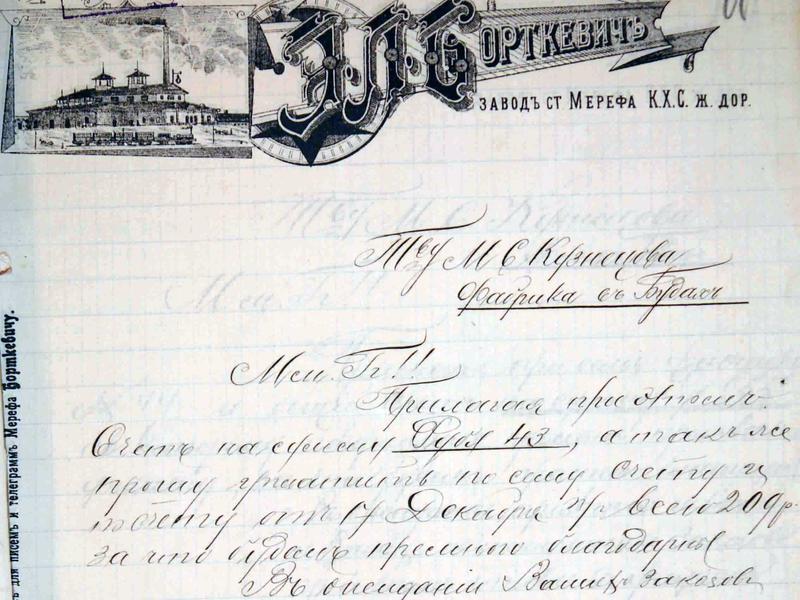 Э.Л. Борткевичъ
ЗАВОДЪ СТ МЕРЕФА К.Х.С. Ж. ДОР.
Тву М С Кузнецова
Фабрика въ Будахъ
Прилагая при этомъ
Счетъ на сумму Руб 43, а также
прошу уплатить по сему счету и
по счету отъ 17 Декабря всего 209 р
за что будемъ премного благодарны
Въ ожиданіи Вашихъ заказовъ
для писемъ и телеграммъ Мерефа Борткевичу.